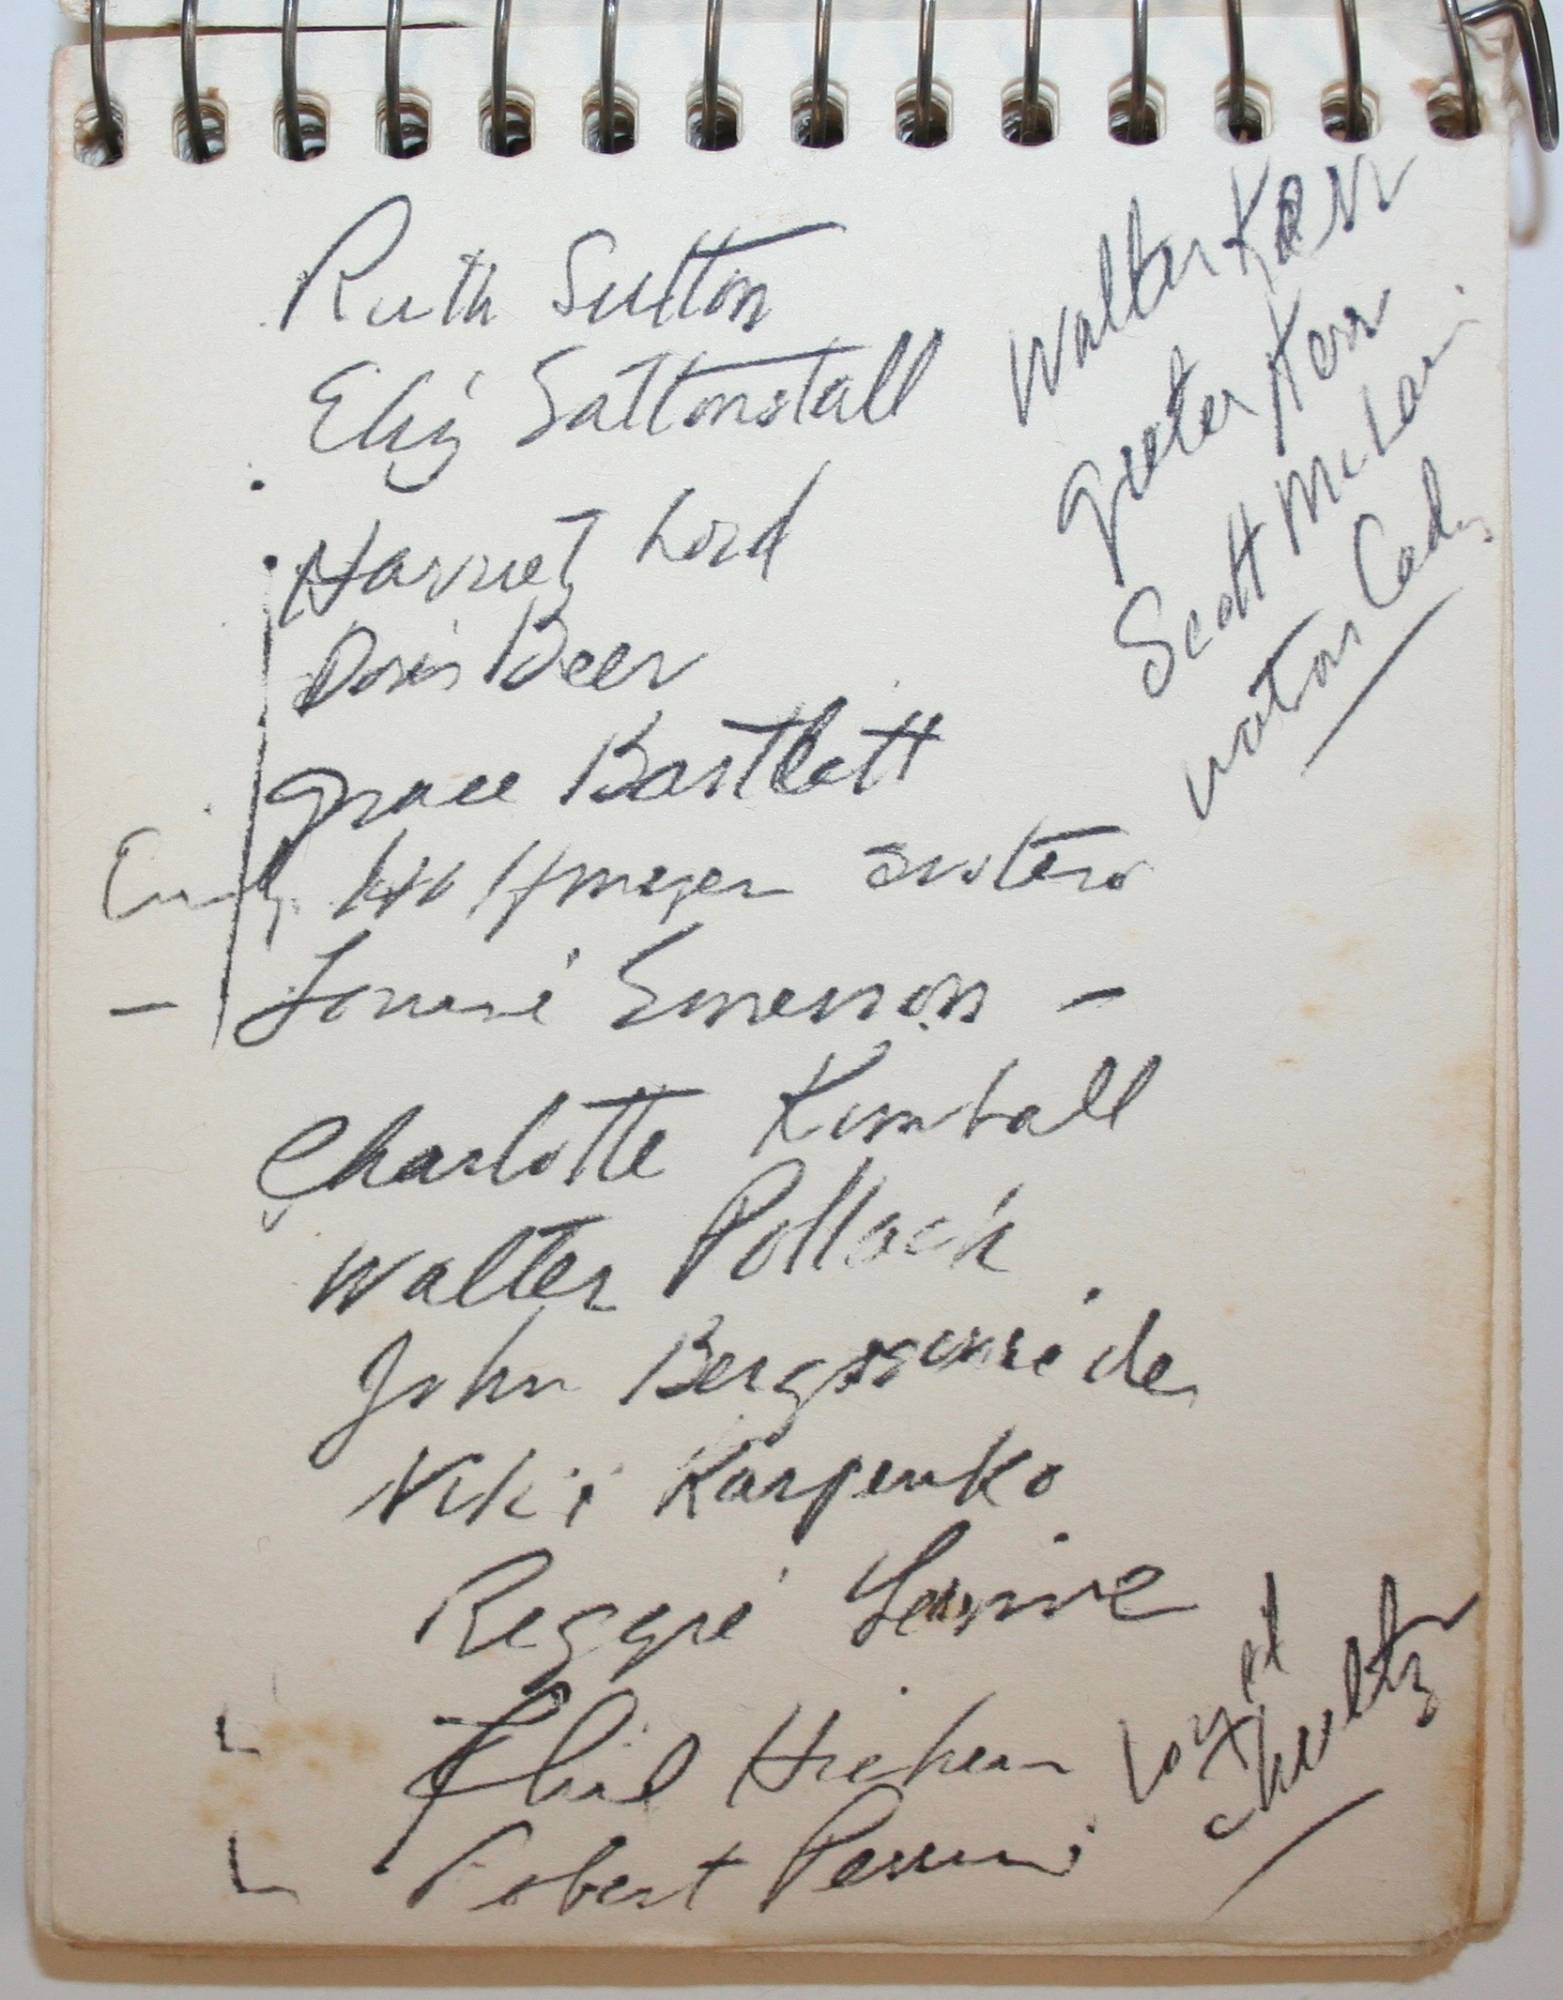 Ruth Sutton
Eliz Saltonstall
Harriet Lord
Doris Beer
Grace Bartlett
Emily Hoffmeyer
– Louise Emerson –
Charlotte Kimball
Walter Pollach
John
Niki Karpenko
Reggie Levine
Phil Hicken
Robert Perrin
Walter Kerr
Kerr
Scott McLari
Cady
Loyd